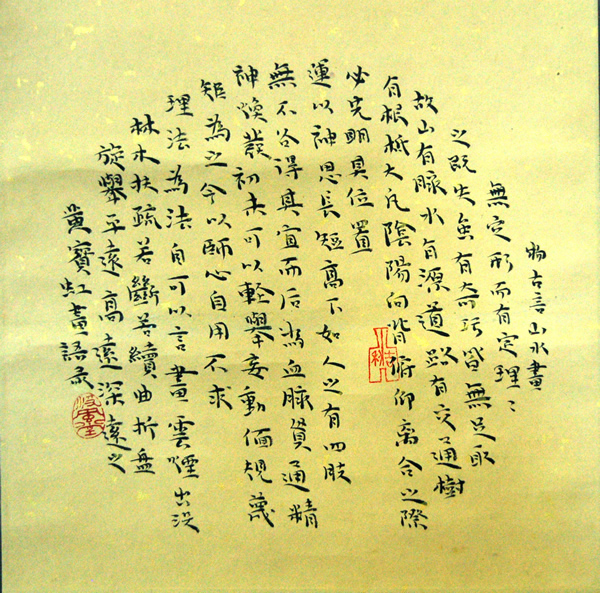 物古言山水畫
無定形而有定理〻
之既失有奇巧皆無足取
故山有脈水有源道路有交通樹
有根柢大凡陰陽向背俯仰離合之際
必究明其位置
運以神思長短高下如人之有四肢
無不各得其宜而后為血脈貫通精
神煥發初未可以輕舉妄動偭規蔑
矩為之今以師心自用不求
理法為法自可以言畫雲煙出沒
林木扶疏若斷若續曲折盤
旋舉平遠高遠深遠之
黃賓虹畫語彔